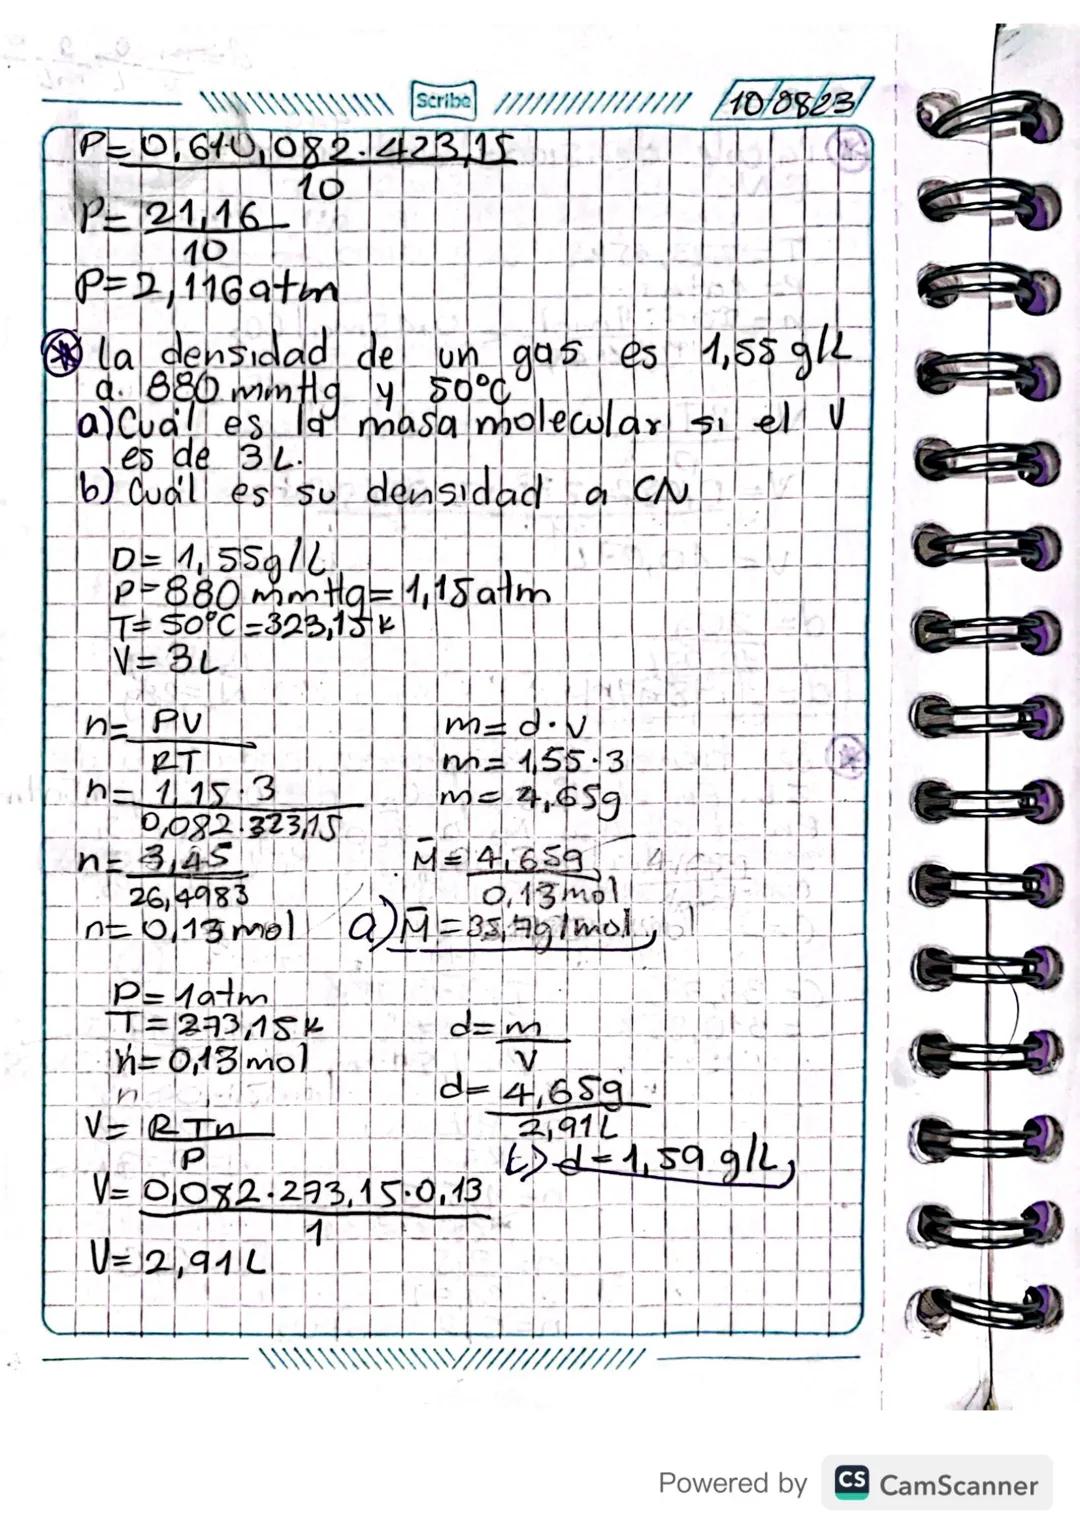 Scribe
10/08/23
P= 0,610,082.423,15
10
P= 21,16
10
P=2,116atm
la densidad de un gas es 1,55 g/L
a. 880 mmHg y 50°C
a) Cuál es la masa molecular si el V
es de 3L.
b) Cuál es su densidad a CN
D= 1,55g/L
P=880 mmHg= 1,15atm
T= 50°C =323,15 K
V= 3L
n= PV
RT
n= 1,15.3
0,082.323,15
n= 3,45
26,4983
n= 0,13 mol
m= d.v
m= 1,55.3
m= 4,65g
M= 4,65g
0,13mol
a) M=35,7g/mol
P= 1atm
T= 273,15K
n= 0,13 mol
n
V= RTn
P
V= 0,082.273,15.0,13
1
V= 2,91L
d= m
V
d= 4,65g
2,91L
b) d=1,59 g/L
Powered by CS CamScanner